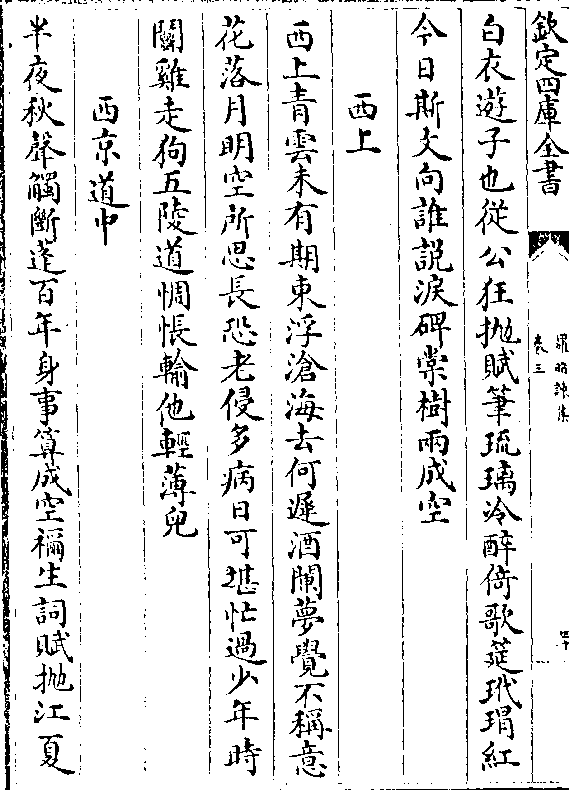 欽定四庫全書
羅昭諫集
卷三
四十
白衣遊子也從公狂抛賦筆琉璃冷醉倚歌筵玳瑁紅
今日斯文向誰説淚碑棠樹兩成空
西上
西上青雲未有期東浮滄海去何遲酒闌夢覺不稱意
花落月明空所思長恐老侵多病日可堪忙過少年時
鬬雞走狗五陵道惆悵輸他輕薄兒
西京道中
半夜秋聲觸斷蓬百年身事算成空禰生詞賦抛江夏